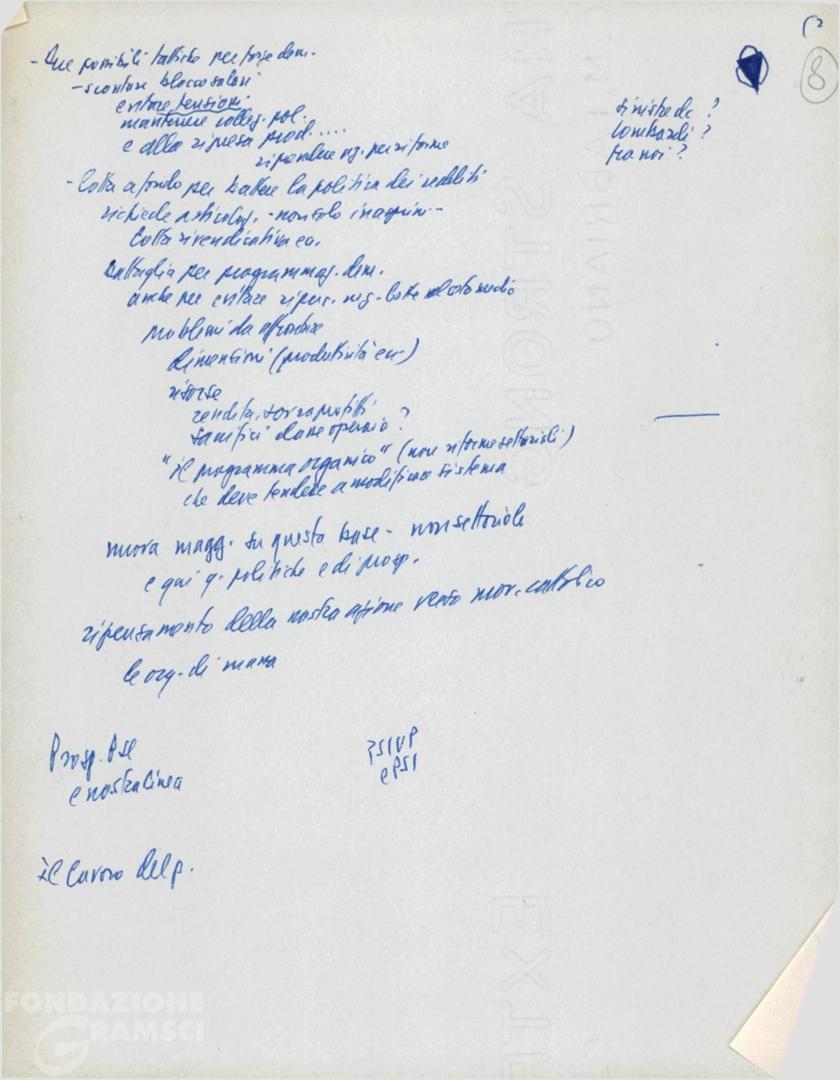 - Due possibili tattiche per forze dem.
- scontare blocco salari
evitare tensioni
mantenere colleg. pol.
e alla ripresa prod....
riprendere ag. per riforme
sinistre dc ?
Lombardi ?
fra noi ?
- Lotta a fondo per battere la politica dei redditi
richiede articolaz. - non solo inasprim -
lotta rivendicativa ec.
battaglia per programmaz. dem.
anche per evitare riperc. neg. lotte nel ceto medio
problemi da affrontare
dimensioni (produttività ec.)
risorse
rendita, sovraprofitti
sacrifici classe operaia ?
"il programma organico" (non riforme settoriali)
che deve tendere a modificare sistema
nuova magg. su questa base - non settoriale
e qui q. politiche e di prosp.
ripensamento della nostra azione verso mov. cattolico
le org. di massa
Prosp. Pse
e nostra linea
PSIUP
e PSI
il lavoro del p.
8
FONDAZIONE
GRAMSCI
EXTRA STRONG
FABRIANO